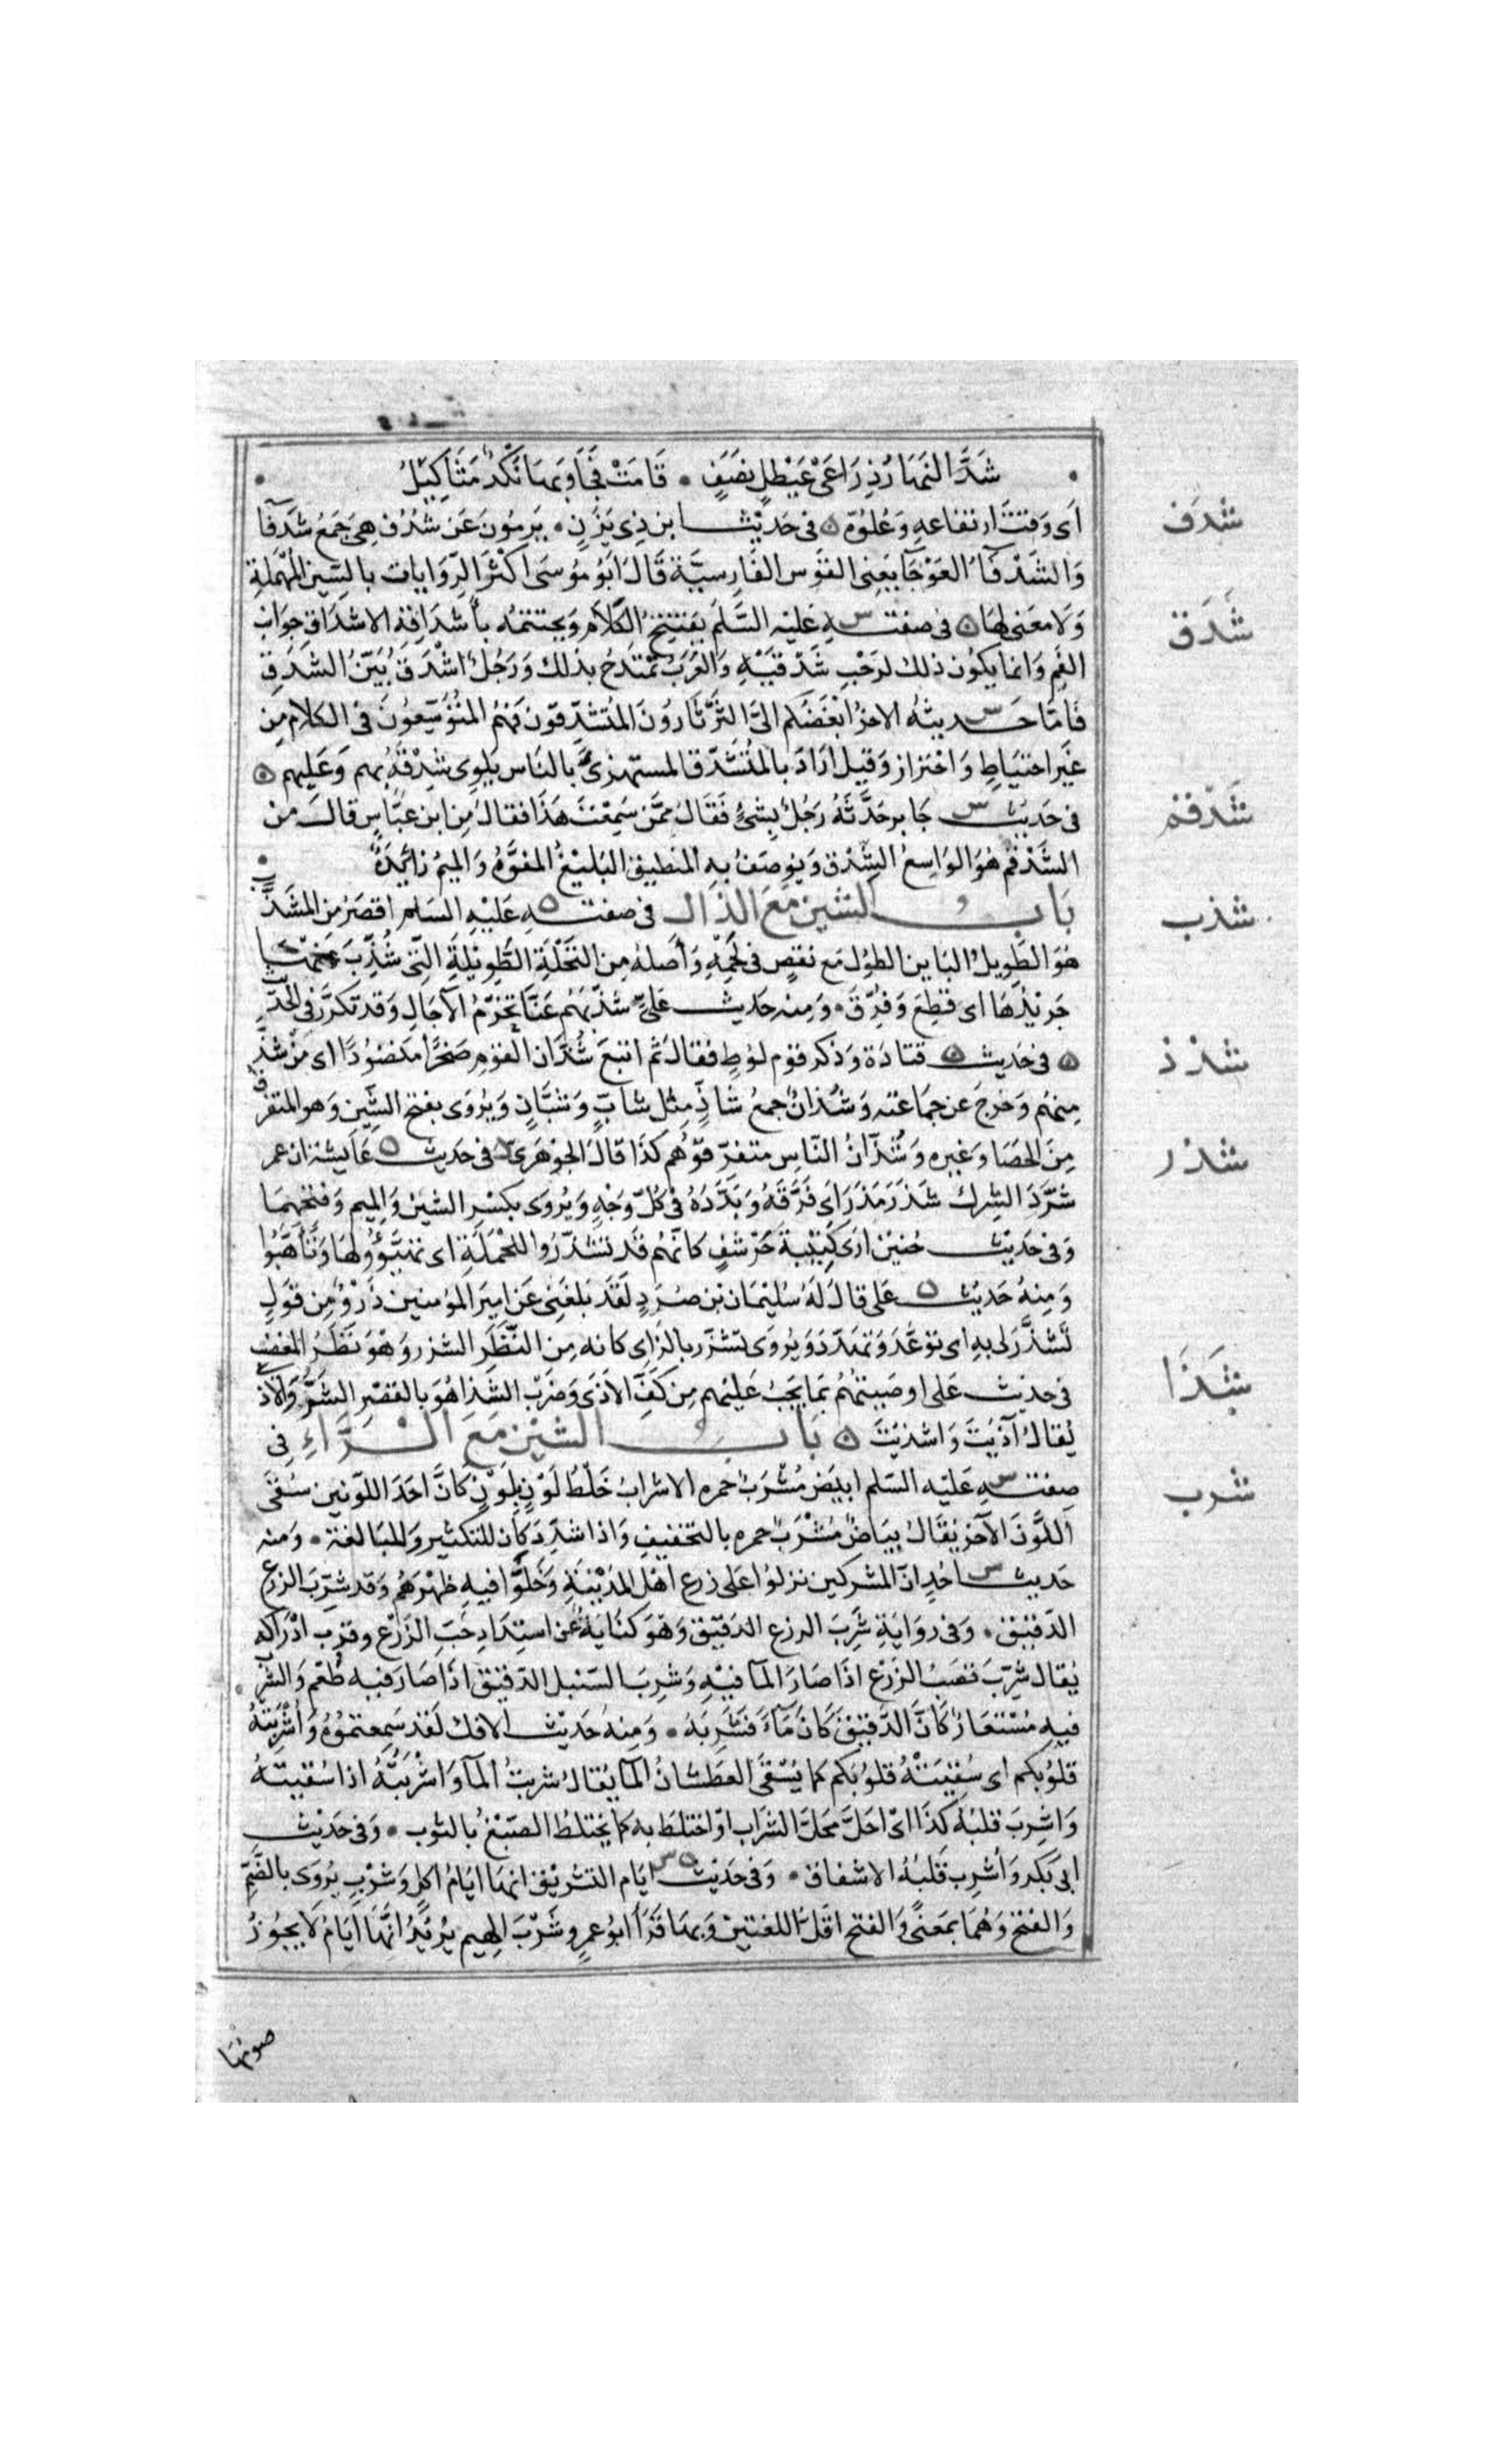 شَدَّ النَّهَارِ ذِرَاعَىْ عَيْطَلٍ نَصَفٍ • قَامَتْ فَجَاوَبَهَا نُكْدٌ مَثَاكِيْلُ
اَى وَقْتَ ارتفاعهِ وَعُلُوّه ۞ فى حَدِيْث ابن ذِى يَزَنٍ • يَرمُونَ عَنْ شُدُفٍ هِىَ جَمْعُ شَدْفَآ
شدف
وَالشَّدْفَآءُ العَوْجَآ يَعْنِى القَوْس الفَارِسيَّة قَالَ اَبُو مُوْسَى اَكْثَرُ الرِّوَايات بالسِّينِ المُهْمَلةِ
وَلَا مَعْنٰى لهَا ۞ فى صفتــه عَلَيْه السَّلَم يَفْتَتِحُ الكَلَامَ وَيَخْتَتمُه بأَشْدَاقِهِ الاشدَاق جوَانب
شدق
الفَمِ وَانما يكُون ذلك لرَحْبِ شَدْقَيْهِ وَالعَرَبُ تَمْتَدِحُ بذلك وَرَجُلٌ اشْدَقُ بَيِّنُ الشَّدَقِ
فَامَّا حَــديثهُ الاخرُ ابْغَضُكم الىَّ الثَّرْثَارُونَ المُتَشَدِّقُون فَهُمُ المُتَوَسِّعُونَ فى الكلام مِن
غَيْر احتيَاطٍ وَاحْتِراز وَقيلَ ارَادَ بالمُتَشَدّق المستهزئَ بالنَّاس يَلْوِى شِدْقَهُ بهم وَعَلَيهم ۞
فى حَديث جَابر حَدَّثَهُ رَجُلٌ بِشَئٍ فَقَالَ مِمَّن سَمِعْتَ هَذَا فقالَ مِن ابن عبَّاسٍ قالَ مِنْ
شدقم
الشَّدْقَم هُوَ الوَاسِعُ الشِّدْق وَيُوصَفُ بهِ المِنطيق البَليْغُ المفوَّهُ وَالميمُ زَائِدَةٌ
بَابُ الشين مَعَ الذَّالِ فى صفتــهِ عَلَيْهِ السَلم اقصَرُ مِنَ المُشَذَّبِ
شذب
هُوَ الطَوِيلُ البَاين الطول مَع نقصٍ فى لَحْمِهِ وَأَصلهُ مِن النَّخْلَةِ الطَّوِيْلةِ الَّتِى شُذِّبَ عَنْهَا
جَرِيْدُهَا اى قُطِعَ وَفُرِّقَ • وَمنه حَديث عَلىٍّ شَذّبَهُم عَنَّا تَخَرُّمُ الآجَالِ وَقد تكرَّرَ فى الحَديث
۞ فى حَديث قتادَة وَذكر قوم لوُطٍ فقالَ ثُمَّ اتبعَ شُذَّان القَوْمِ صَخْرًا مَنضُودًا اى مَنْ شَذَّ
شذذ
مِنهُم وَخرج عن جمَاعته وَشُذَّانٌ جَمعُ شَاذٍّ مِثل شَابٍّ وَشبَّانٍ وَيُروَى بفتح الشِّين وَهو المتفرّق
مِنَ الحَصَا وَغيرِه وَشُذَّانُ النّاسِ متفرّقوْهُم كذَا قالَ الجَوْهَرِىّ فى حَديث عَايشة ان عمر
شذر
شَرَّدَ الشركَ شَذَرَ مَذَرَ اى فَرَّقَهُ وَبَدَّدَهُ فى كُلّ وَجْهٍ وَيُروَى بكسْرِ الشين وَالميم وَفتحِهمَا
وَفى حَديْث حُنَيْن ارَى كَتيْبةَ حَرْشَفٍ كانهُم قَد تشَذَّرُوا للحْمَلَةِ اى تهَيَّؤُوْ لهَا وَتَأَهَّبُوا
وَمنهُ حَديْث عَلى قالَ لَهُ سُليْمَان بن صُرَدٍ لَقَد بَلغَنِى عَن اميرَ المؤمنين ذَرْوٌ مِن قَوْلٍ
تَشَذَّرَ لى بهِ اى تَوَعَّدَ وَتهَدَّدَ وَيُروَى تشزّر بالزَاى كانه مِن النَّظَرِ الشزرِ وَهُوَ نَظَرُ المُغضَب
فى حديث عَلى اوصَيتهُمْ بمَا يَجبُ عَليْهم مِن كَفِّ الاَذَى وَصَرْفِ الشّذَا هُوَ بالقَصْر الشَرُّ وَالاذى
شَذَا
يُقالُ آذَيْتَ وَاشذَيْتَ ۞ بَابُ الشِّيْنِ مَعَ الرَّاءِ فِى
صِفتــهِ عَلَيْه السَلم ابيَضُ مُشْرَبٌ حمره الاشرابُ خَلْطُ لَوْنٍ بِلَوْنٍ كَانَّ احَدَ اللّوْنين سُقِىَ
شرب
اللَّوْنَ الآخر يُقَالُ بيَاضٌ مُشْرَبٌ حمره بالتخفيف وَاذا شدّدَ كَان للتكثير وَللمبَالغة • وَمنه
حَديث اُحُدٍ انّ المشركين نزلوُا عَلى زرع اهْل المَدِيْنَةِ وَخَلَّوْا فيهِ ظَهْرَهُم وَقد شُرِّبَ الزرع
الدَّقيْق • وَفى روَايَةِ شَرِبَ الزرع الدَّقيْق وَهُوَ كنَايَةٌ عَن اشتِدَادِ حَبِّ الزَرْع وقربِ ادْرَاكه
يُقال شرّبَ قَصَبُ الزَرْع اذَا صَارَ المآ فيْهِ وَشرِبَ السّنبل الدّقيْق اذَا صَارَ فيه طُعْم وَالشُّرْب
فيهِ مُسْتَعَارٌ كَانَّ الدَّقيْقَ كَانَ مَآءً فَشَرِبَهُ • وَمنهُ حَديْث الافك لَقد سَمِعتمُوْهُ وَأُشْرِبَتْهُ
قلوُبكم اى سُقِيَتْهُ قلوُبكم كما يُسْقَى العَطشانُ المآ يُقالُ شربتُ المآ وَاشْرَبتُهُ اذا سُقيتَهُ
وَاشرِبَ قلبُهُ كذَا اىْ احَلَّ مَحَلّ الشرَاب اوْ اختلَطَ به كما يختلطُ الصّبْغُ بالثوب • وَفى حَديْث
ابى بَكر وَأُشرِبَ قَلبُهُ الاشفاق • وَفى حَديْث ايّام التشرِيْق انهَا ايّامُ اكلٍ وَشُرْبٍ يُروَى بالضَّمِّ
وَالفتح وَهُمَا بمَعْنًى وَالفتح اقَلّ اللغتيْن وَبهَا قَرَأَ ابوُ عمرٍو شَرْبَ الهِيم يُرِيْدُ انَّهَا ايَّامٌ لَا يجُوْزُ
صومها